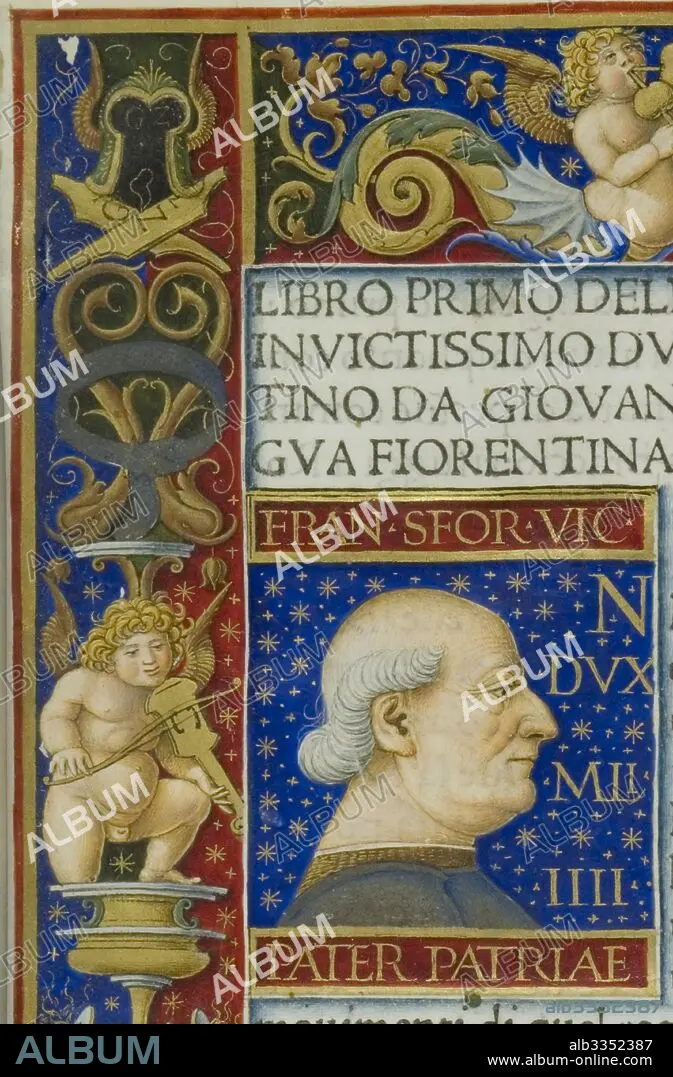 LIBRO PRIMO DEL
INVICTISSIMO DV
TINO DA GIOVAN
GVA FIORENTINA
FRAN · SFOR · VIC
N
DVX
· MLI ·
IIII
PATER PATRIAE
ALBUM
alb3352387
www.album-online.com